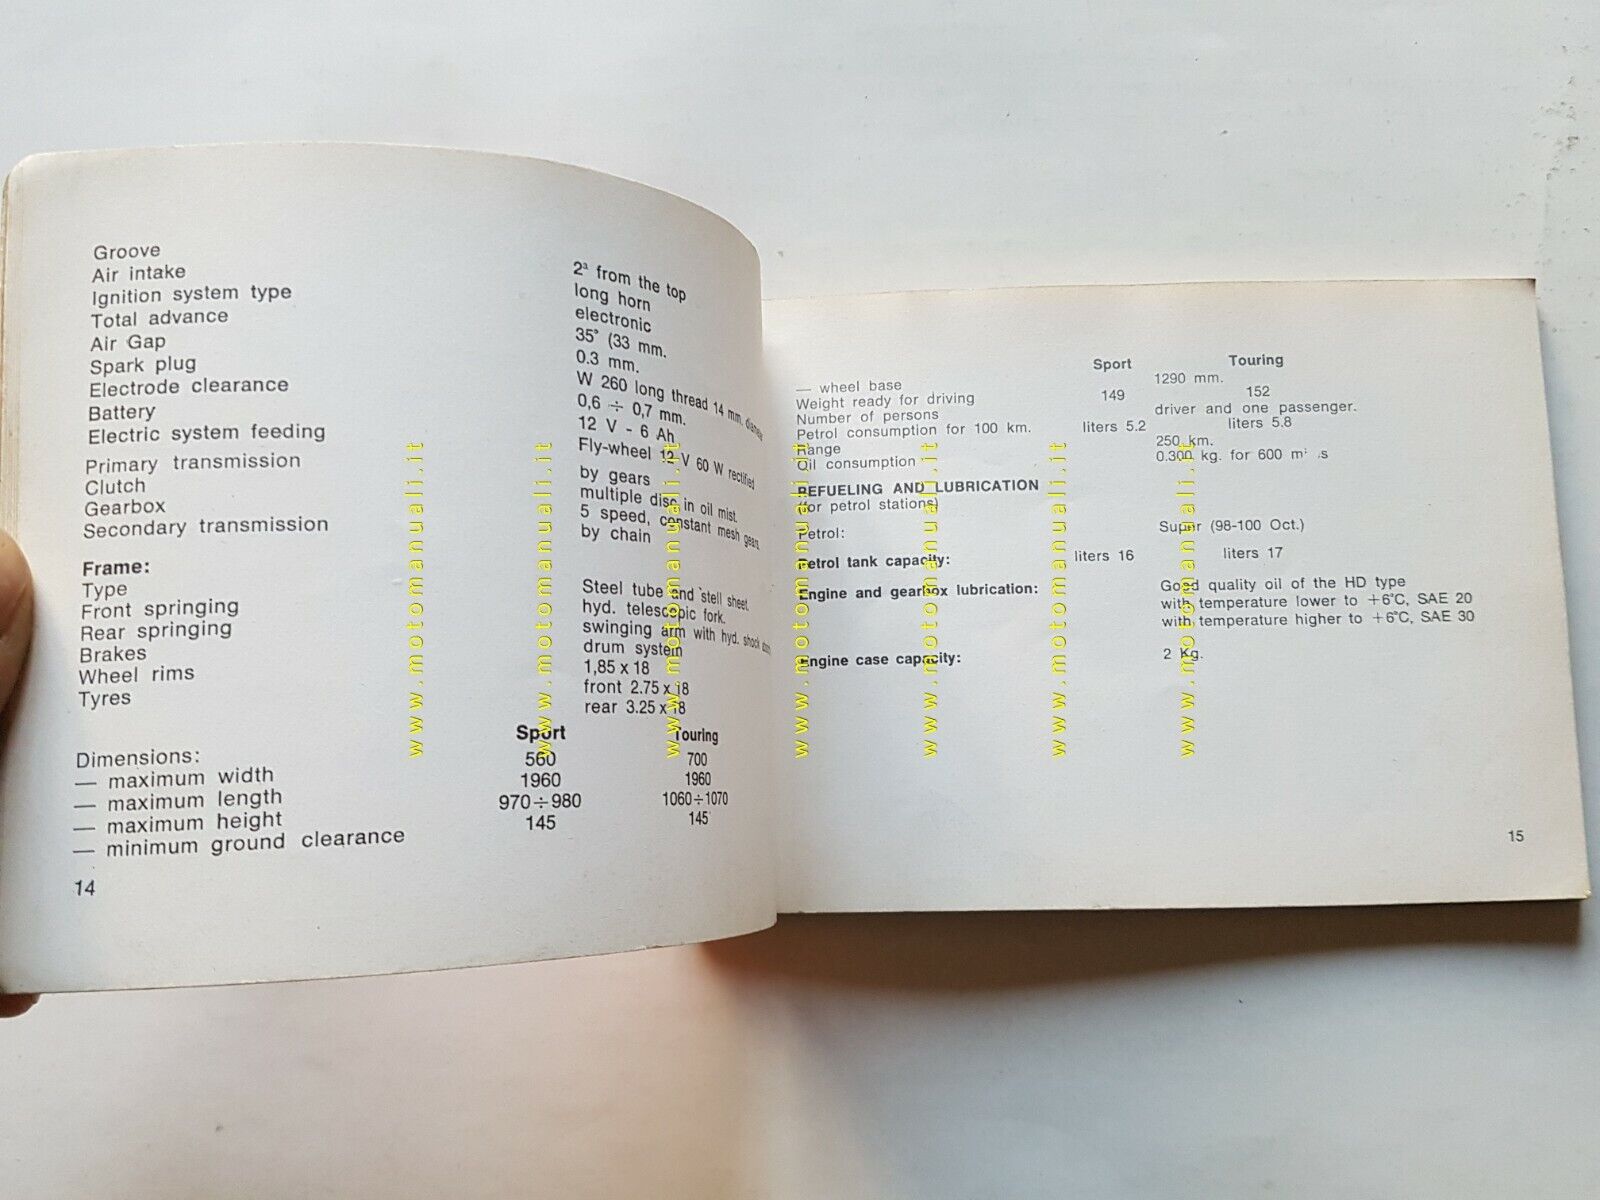 Groove 2ª from the top
Air intake long horn
Ignition system type electronic
Total advance 35° (33 mm.
Air Gap 0.3 mm.
Spark plug W 260 long thread 14 mm.
Electrode clearance 0,6 ÷ 0,7 mm.
Battery 12 V - 6 Ah
Electric system feeding Fly-wheel 12 V 60 W rectified
Primary transmission by gears
Clutch multiple disc in oil mist.
Gearbox 5 speed, constant mesh gears
Secondary transmission by chain
Frame:
Type Steel tube and stell sheet.
Front springing hyd. telescopic fork.
Rear springing swinging arm with hyd. shock
Brakes drum system
Wheel rims 1,85 x 18
Tyres front 2.75 x 18
rear 3.25 x 18
Sport Touring
Dimensions:
— maximum width 560 700
— maximum length 1960 1960
— maximum height 970÷980 1060÷1070
— minimum ground clearance 145 145
14
Sport Touring
— wheel base 1290 mm.
Weight ready for driving 149 152
Number of persons driver and one passenger.
Petrol consumption for 100 km. liters 5.2 liters 5.8
Range 250 km.
Oil consumption 0.300 kg. for 600
REFUELING AND LUBRICATION
(for petrol stations)
Petrol: Super (98-100 Oct.)
Petrol tank capacity: liters 16 liters 17
Engine and gearbox lubrication: Good quality oil of the HD type
with temperature lower to +6°C, SAE 20
with temperature higher to +6°C, SAE 30
Engine case capacity: 2 Kg.
15
www.motomanuali.it
www.motomanuali.it
www.motomanuali.it
www.motomanuali.it
www.motomanuali.it
www.motomanuali.it
www.motomanuali.it